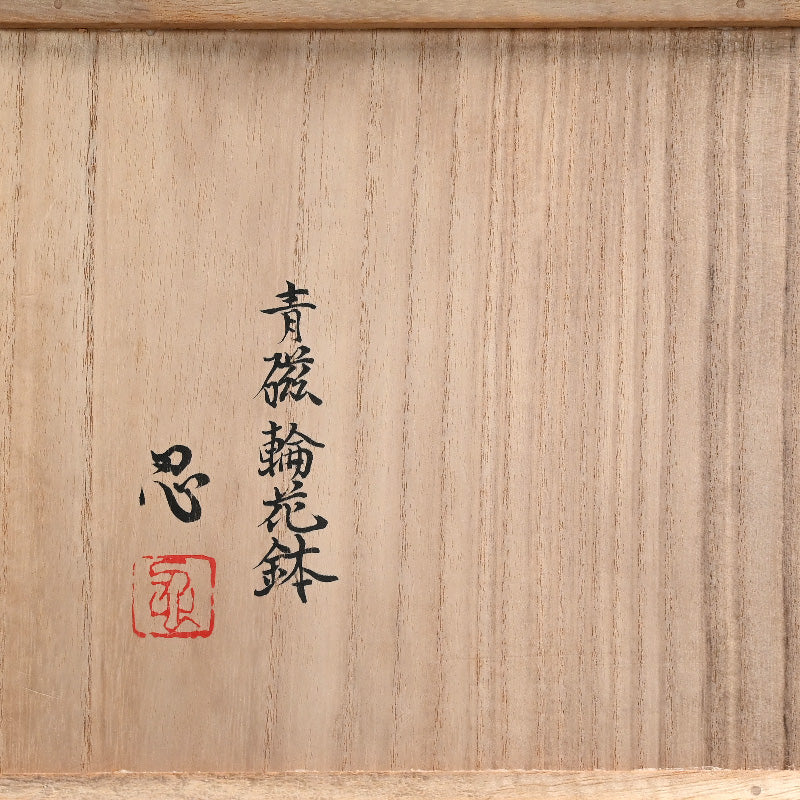 青磁輪花鉢
忍